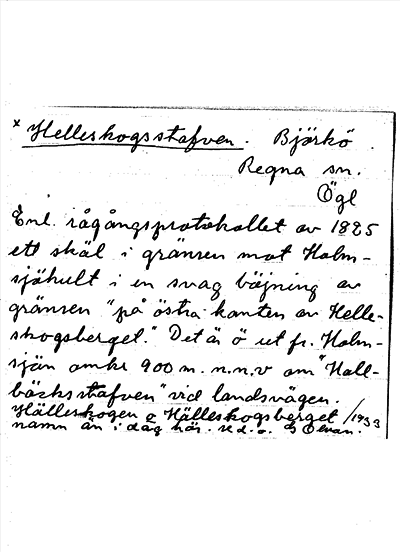 x Helleskogsstafven. Björkö.
Regna sn.
Ögl
Enl. rågångsprotokollet av 1825
ett skäl i gränsen mot Holm-
sjöhult i en svag böjning av
gränsen "på östra kanten av Helle-
skogsberget." Det är ö ut fr. Holm-
sjön omkr 900 m. n.n.v om "Hall-
bäcksstafven" vid landsvägen.
Hälleskogen o Hälleskogsberget /1933
namn än i dag här.